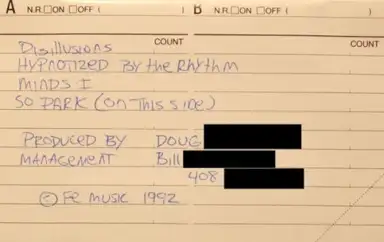 A N.R.□ON □OFF ( ) B N.R.□ON □OFF ( )
COUNT COUNT
DISILLUSIONS
HYPNOTIZED BY the RHYTHM
MINDS I
SO DARK (ON THIS SIDE)
PRODUCED BY DOUG
MANAGEMENT Bill
408
© FE MUSIC 1992